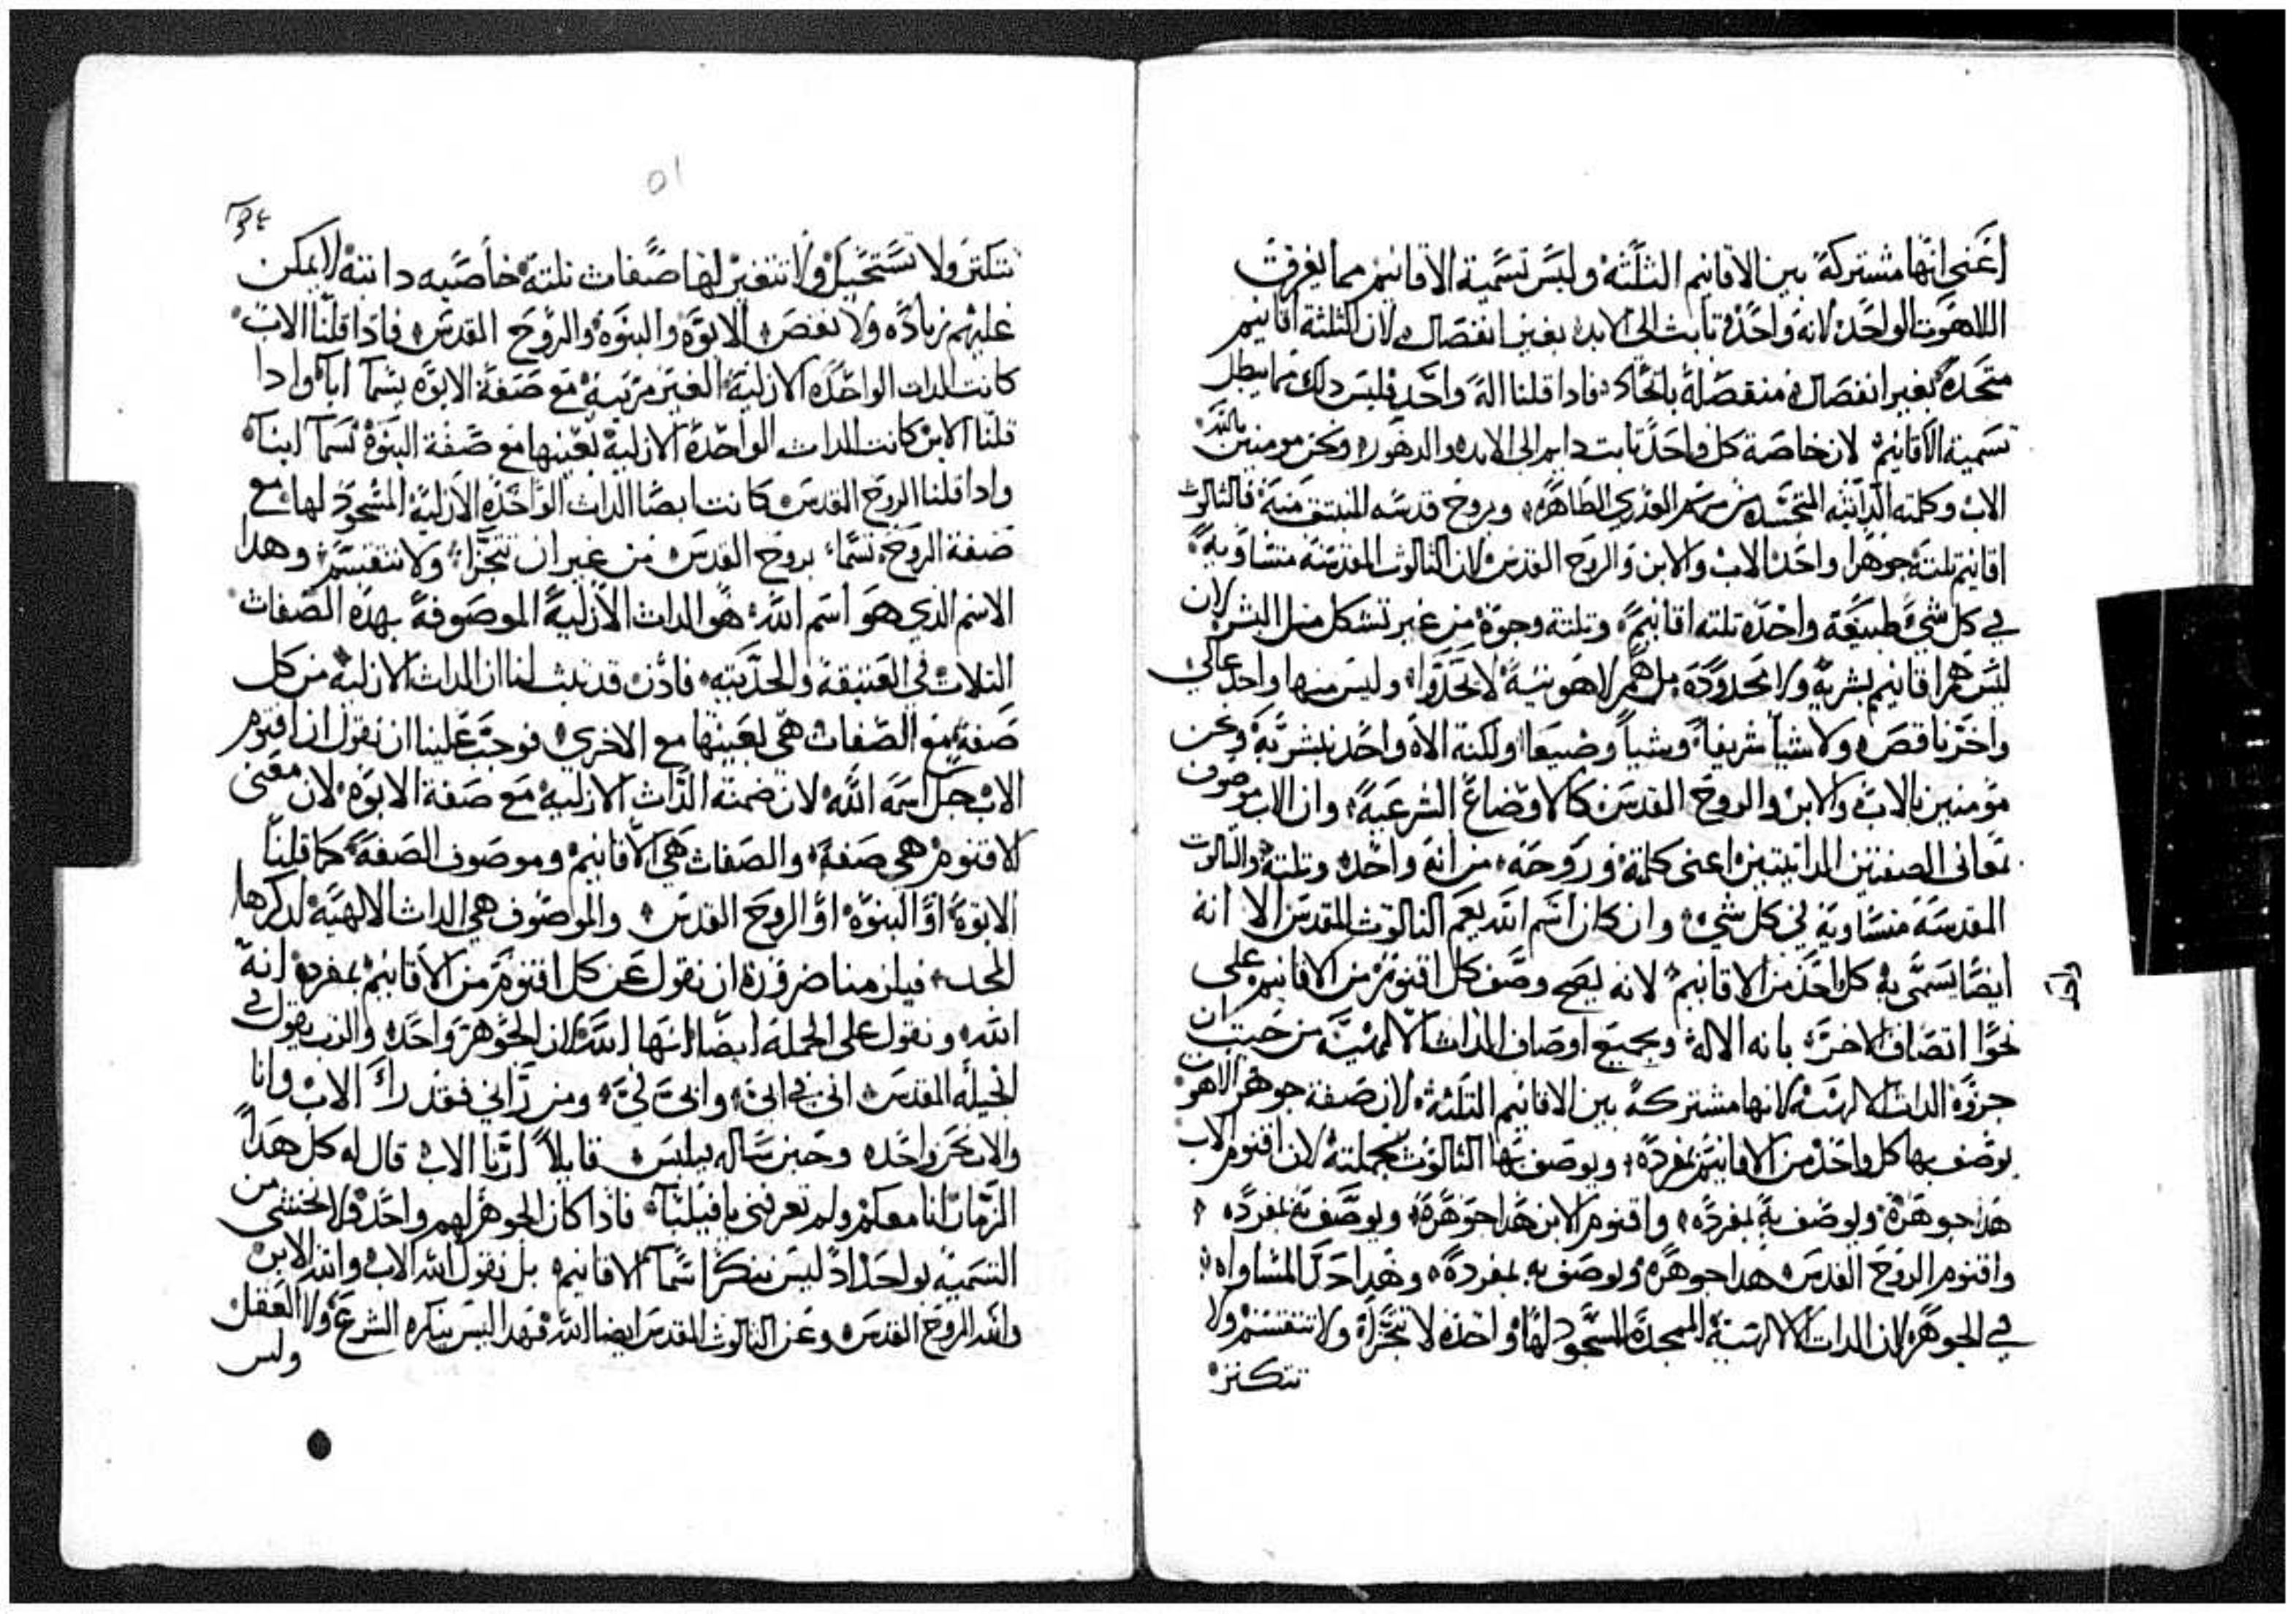 اعني انها مشتركة بين الاقانيم الثلثة وليس تسمية الاقانيم مما يفرق
اللاهوت الواحد لانه واحد ثابت الى الابد بغير انفصال لان الثلثة اقانيم
متحدة بغير انفصال منفصلة باتحاد فادا قلنا اله واحد فليس دلك مما يبطل
تسمية الاقانيم لان خاصة كل واحد تابت دايم الى الابد والدهور ونحن مومنين بالله
الاب وكلمته الداتيه المتجسد من مريم العدري الطاهره وبروح قدسه المنبتق منه فالتالوت
اقانيم تلتة جوهرا واحد الاب والابن والروح القدس لان التالوت المقدسة متساويه
في كل شي طبيعة واحده تلته اقانيم وتلتة وجوه من غير تشكل متل البشر لان
ليس هم اقانيم بشرية ولا محدوده بل هم لاهوتية لا تحد وليس منها واحد عالي
واخر ناقص ولا شيا شريفا وشيا وضيعا ولكنه الاه واحد نبشر به ونحن
مومنين بالاب والابن والروح القدس كالاوضاع الشرعية وان الاب موصوف
بمعاني الصفتين الداتيتين اعني كلمته وروحه من انه واحد وتلتة والتالوت
المقدسة متساوية في كل شي وان كان اسم الله يعم التالوت المقدس الا انه
ايضا يسمى به كل احد من الاقانيم لانه يصح وصف كل اقنوم من الاقانيم على
واحد
نحو اتصاف الاخر بانه الاله وبجميع اوصاف الدات الالهية من حيت ان
الدات الالهية لانها مشتركة بين الاقانيم التلته لان صفة جوهر اللاهوت
يوصف بها كل واحد من الاقانيم بمفرده ويوصف بها التالوت بجملته لان اقنوم الاب
هدا جوهره ويوصف به بمفرده واقنوم الابن هدا جوهره ويوصف به بمفرده
واقنوم الروح القدس هدا جوهره ويوصف به بمفرده وهدا حد المساواه
في الجوهر لان الدات الالهية الممجدة المسجود لها واحده لا تتجزا ولا تنقسم ولا
تتكتر
٥١
تتكتر ولا تستحيل ولا تتغير لها صفات تلتة خاصيه داتية لا يمكن
عليهم زياده ولا نقص الابوة والبنوة والروح القدس فادا قلنا الاب
كانت الدات الواحده الازلية الغير مرتبة مع صفة الابوه يسما ابا وادا
قلنا الابن كانت الدات الواحدة الازلية بعينها مع صفة البنوة تسما ابنا
وادا قلنا الروح القدس كانت ايضا الدات الواحده الازلية المسجود لها مع
صفة الروح تسما بروح القدس من غير ان تتجزا ولا تنقسم وهدا
الاسم الدي هو اسم الله هو الدات الازلية الموصوفة بهده الصفات
التلات في العتيقة والحديته فادن قد تبت لنا ان الدات الازلية من كل
صفة مع الصفات هي بعينها مع الاخري فوجب علينا ان نقول ان اقنوم
الاب جل اسمه الله لان ضمنه الدات الازلية مع صفة الابوه لان معني
الاقنوم هي صفة والصفات هي الاقانيم وموصوف الصفة كما قلنا
الابوة او البنوة او الروح القدس والموصوف هي الدات الالهية لدكرها
المجد فيلزمنا ضرورة ان نقول عن كل اقنوم من الاقانيم بمفرده انه
الله ونقول على الجملة ايضا انها الله لان الجوهر واحد والرب يقول في
انجيله المقدس اني في ابي وابي في ومن راني فقد راي الاب وانا
والاب نحن واحد وحين ساله فيلبس قايلا ارنا الاب قال له كل هدا
الزمان انا معكم ولم تعرفني يا فيلبا فادا كان الجوهر لهم واحد فلا نخشي من
التسمية بواحد اد ليس ننكر اسما الاقانيم بل نقول الله الاب والله الابن
والله الروح القدس وعن التالوت المقدس ايضا الله فهدا ليس ينكره الشرع ولا العقل
وليس